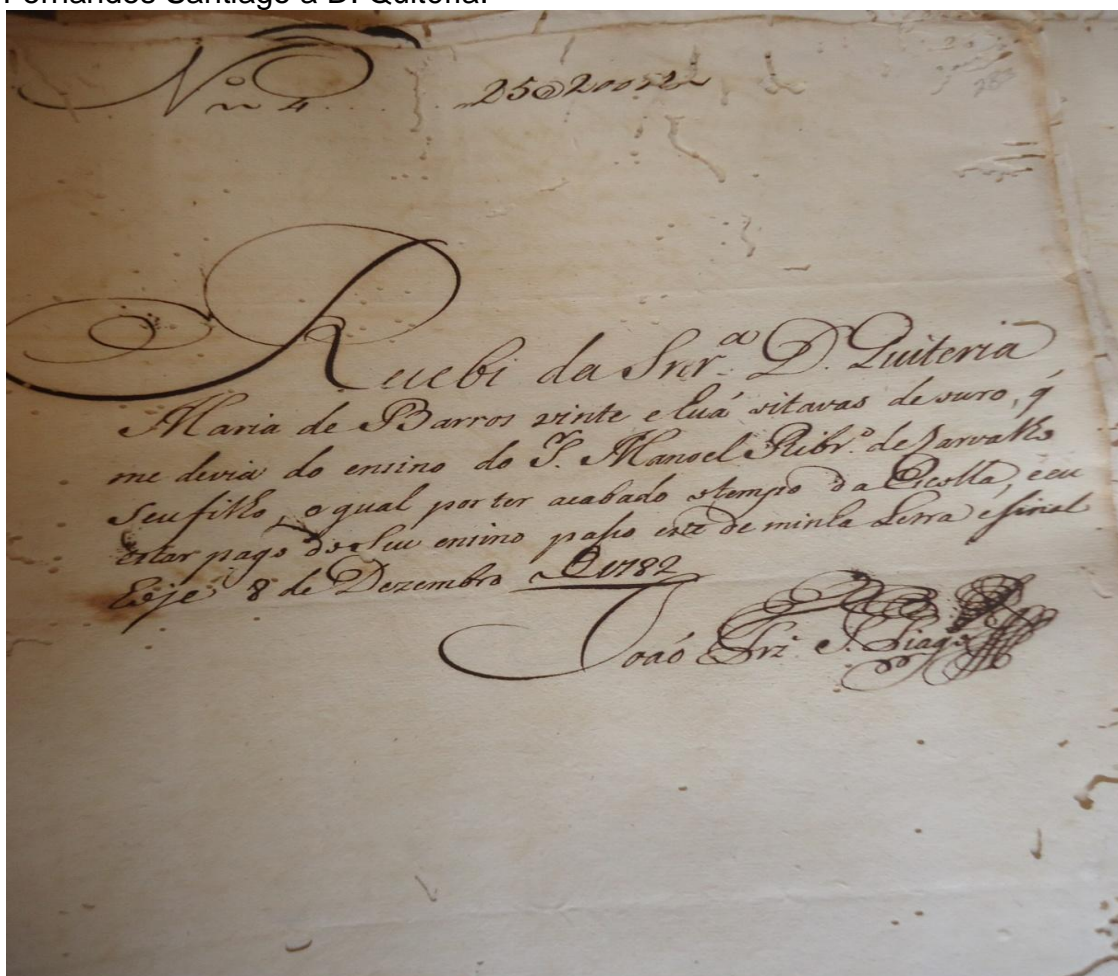 Fernandes Santiago a D. Quitéria.
N.º 4 25@200
Recebi da Snr.ª D. Quiteria
Maria de Barros vinte e huã oitavas de ouro, q̃
me devia do ensino do Manoel Ribr.º de Carvalho
seu filho, o qual por ter acabado o tempo da Escolla, e eu
estar pago do seu ensino passo esta de minha Letra e sinal
Eoje 8 de Dezembro D 1782
João Frz' S. Tiago